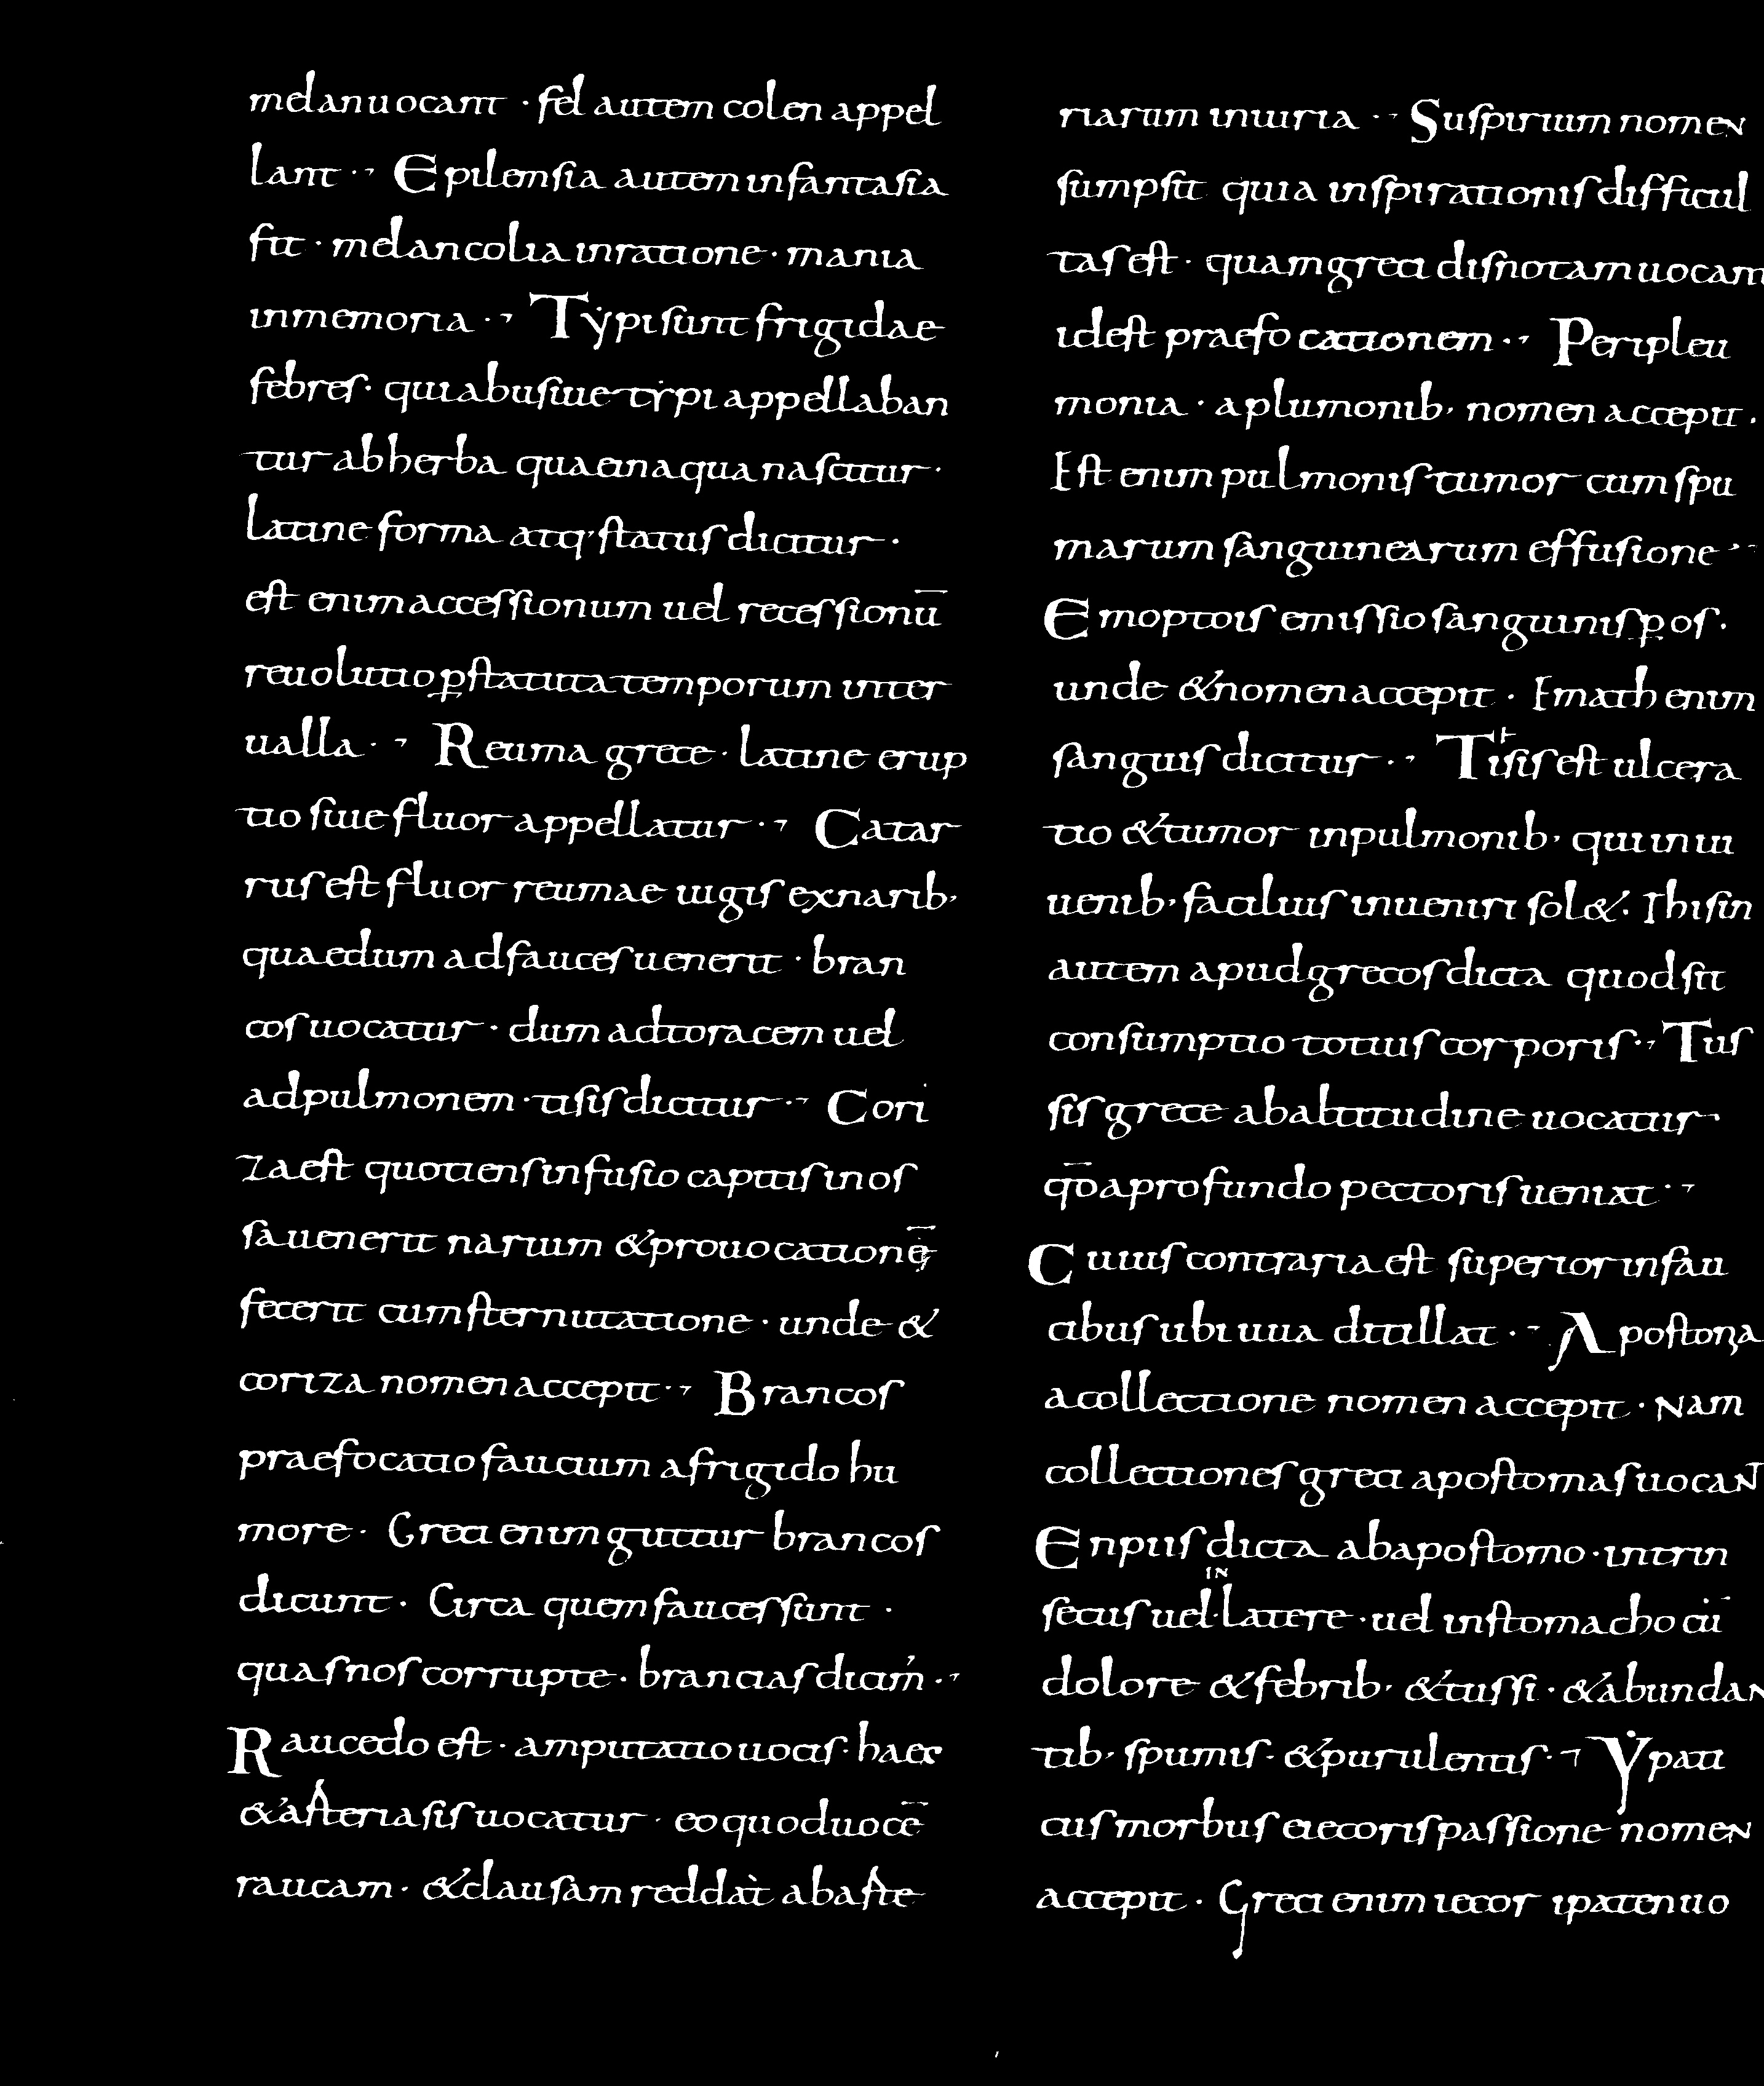 melanuocant · fel autem colen appel
lant ·⁊ Epilensia autem infantasia
fit · melancolia inratione · mania
inmemoria ·⁊ Tẏpi sunt frigidae
febres · qui abusiue tẏpi appellaban
tur ab herba quae in aqua nascitur ·
latine forma atq; status dicitur ·
est enim accessionum uel recessionū
reuolutio ꝑ statuta temporum inter
ualla ·⁊ Reuma grece · latine erup
tio siue fluor appellatur ·⁊ Catar
rus est fluor reumae iugis ex narib;
quae dum ad fauces uenerit · bran
cos uocatur · dum ad toracem uel
ad pulmonem · tisis dicitur ·⁊ Cori
za est quotiens infusio capitis in os
sa uenerit narium & prouocationē
fecerit cum sternutatione · unde &
coriza nomen accepit ·⁊ Brancos
praefocatio faucium a frigido hu
more · Greci enim guttur brancos
dicunt · Circa quem fauces sunt ·
quas nos corrupte · brancias dicim̓ ·⁊
Raucedo est · amputatio uocis · haec
& asteriasis uocatur · eo quod uocē
raucam · & clausam reddat ab aste
riarum iniuria ·⁊ Suspirium nomen
sumpsit quia inspirationis difficul
tas est · quam greci disnotam uocant
id est praefocationem ·⁊ Peripleu
monia · a plumonib; nomen accepit ·
Est enim pulmonis tumor cum spu
marum sanguinearum effusione ·⁊
Emoptois emissio sanguinis ꝑ os ·
unde & nomen accepit · Emath enim
sanguis dicitur ·⁊ Tisis est ulcera
tio & tumor in pulmonib; qui in iu
uenib; facilius inueniri sol& · Thisin
autem apud grecos dicta quod sit
consumptio totius corporis ·⁊ Tus
sis grece ab altitudine uocatur ·
qd̄ a profundo pectoris ueniat ·⁊
Cuius contraria est superior in fau
cibus ubi uua titillat ·⁊ Apostoma
a collectione nomen accepit · Nam
collectiones greci apostomas uocant
Enpiis dicta ab apostomo · intrin
secus uel · in latere · uel in stomacho cū
dolore & febrib; & tussi · & abundan
tib; spumis · & purulentis ·⁊ Ẏpati
cus morbus a iecoris passione nomen
accepit · Greci enim iecor ipaten uo